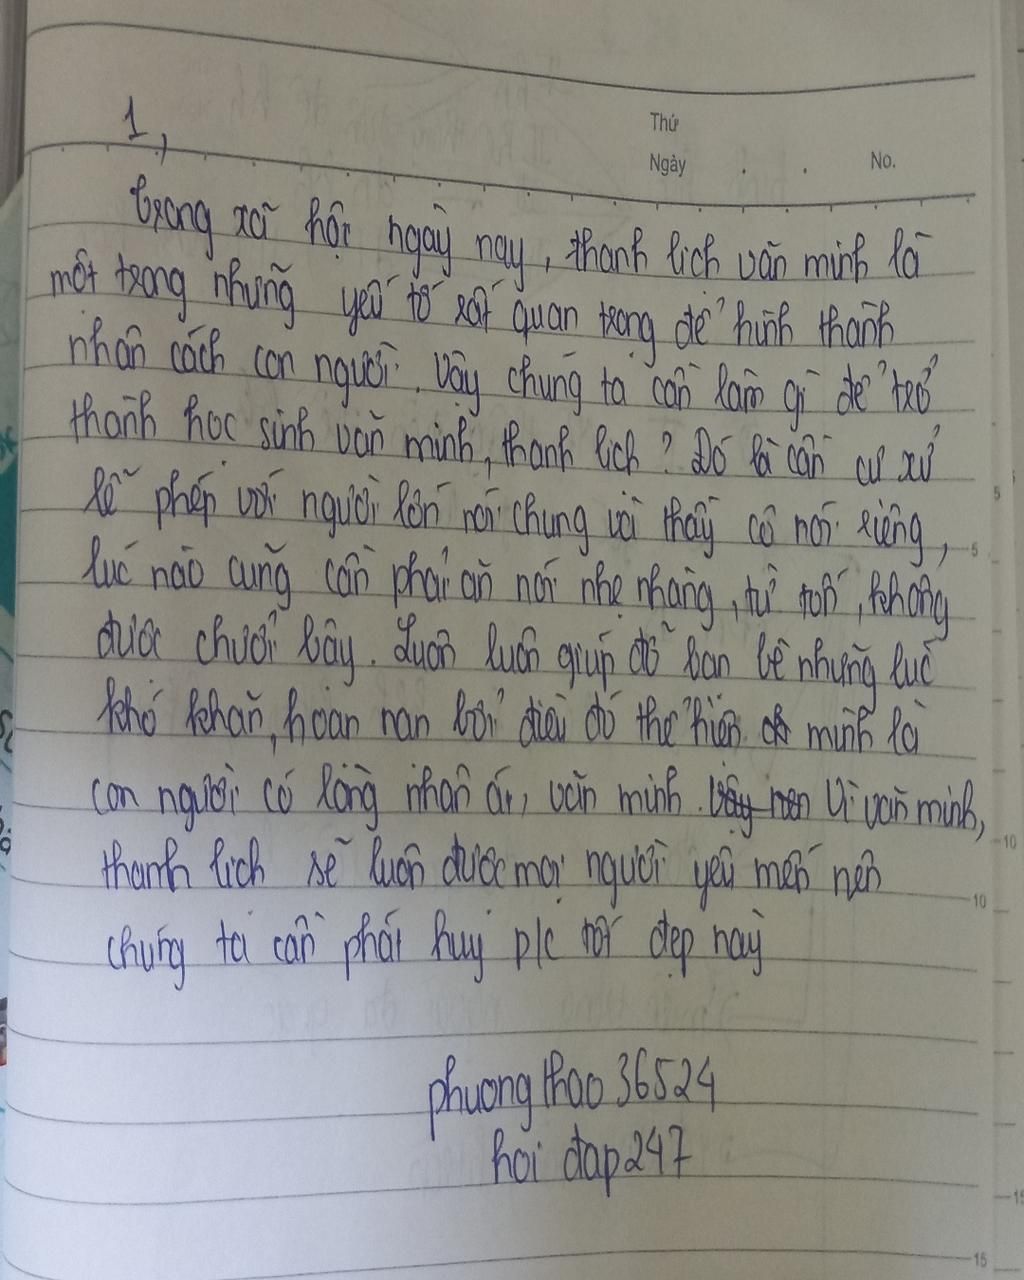 1,
Thứ
Ngày . . No.
trong xã hội ngày nay, thanh lịch văn minh là
một trong những yếu tố rất quan trọng để hình thành
nhân cách con người. Vậy chúng ta cần làm gì để trở
thành học sinh văn minh, thanh lịch? Đó là cần cư xử
lễ phép với người lớn nói chung và thầy cô nói riêng,
lúc nào cũng cần phải ăn nói nhẹ nhàng, từ tốn, không
được chửi bậy. Luôn luôn giúp đỡ bạn bè những lúc
khó khăn, hoạn nạn bởi điều đó thể hiện mình là
con người có lòng nhân ái, văn minh. Vậy nên Vì văn minh,
thanh lịch sẽ luôn được mọi người yêu mến nên
chúng ta cần phát huy p/c tốt đẹp này
phuongthao36524
hoi dap247
5
5
10
10
15